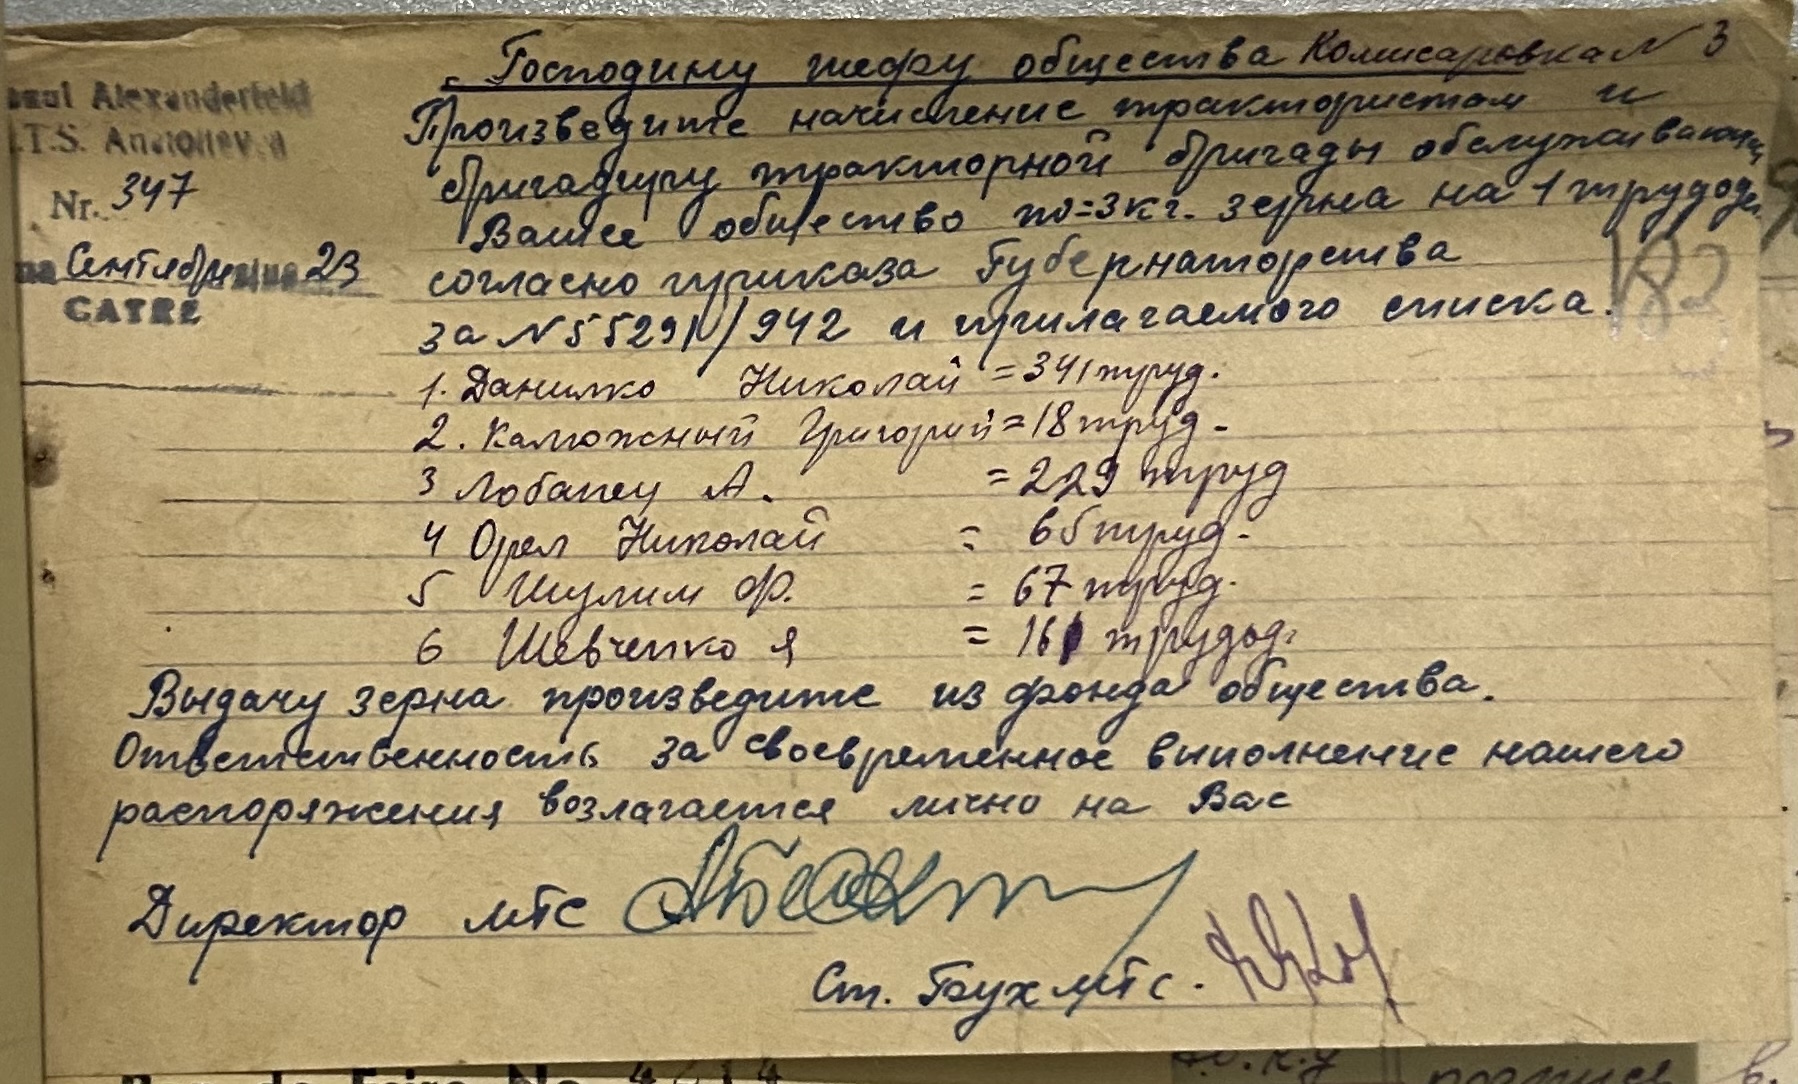 Господину шефу общества Комисаровка N 3
Alexanderfeld
Произведите начисление трактористам и
T.S.
бригадиру тракторной бригады обслуживающ
Nr. 347
Ваше общество по=3кг. зерна на 1 трудод.
Сентября 23
согласно приказа Губернаторства
CATRE
за N 55291/942 и прилагаемого списка.
1. Данилко Николай = 341 труд.
2. Калюжный Григорий = 18 труд.
3 Лобанец А. = 229 труд
4 Орел Николай = 65 труд.
5 Шулим Ф. = 67 труд.
6 Шевченко Я = 161 трудод.
Выдачу зерна произведите из фонда общества.
Ответственность за своевременное выполнение нашего
распоряжения возлагается лично на Вас
Директор МТС
Ст. Бух МТС.